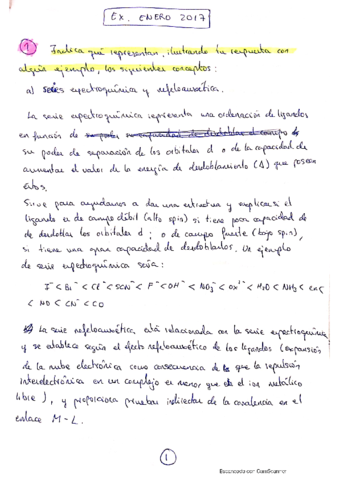 EX. ENERO 2017
1 Indica qué representan, ilustrando tu respuesta con
algún ejemplo, los siguientes conceptos:
a) series espectroquímica y nefelauxética.
La serie espectroquímica representa una ordenación de ligandos
en función de
su poder de separación de los orbitales d o de la capacidad de
aumentar el valor de la energía de desdoblamiento (Δ) que poseen
estos.
Sirve para ayudarnos a dar una estructura y explicar si el
ligando es de campo débil (alto spin) si tiene poca capacidad de
de desdoblar los orbitales d; o de campo fuerte (bajo spin),
si tiene una gran capacidad de desdoblarlos. Un ejemplo
de serie espectroquímica sería:
I⁻ < Br⁻ < Cl⁻ < SCN⁻ < F⁻ < OH⁻ < NO₃⁻ < ox²⁻ < H₂O < NH₃ < en <
< NO < CN⁻ < CO
La serie nefelauxética está relacionada con la serie espectroquímica
y se establece según el efecto nefelauxético de los ligandos (expansión
de la nube electrónica como consecuencia de que la repulsión
interelectrónica en un complejo es menor que en el ion metálico
libre), y proporciona pruebas indirectas de la covalencia en el
enlace M-L.
1
Escaneado con CamScanner